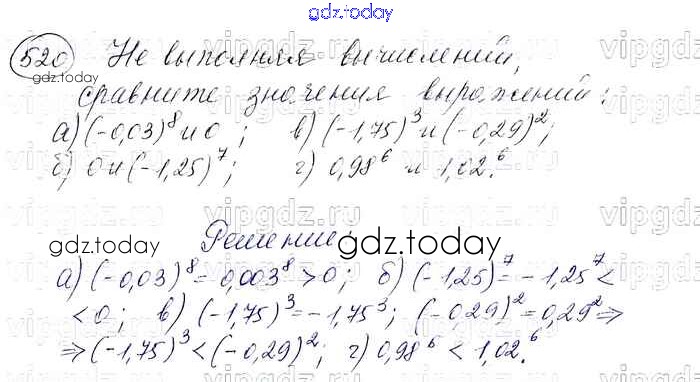 gdz.today
520 Не выполняя вычислений,
gdz.today
сравните значения выражений:
а) (-0,03)^8 и 0; в) (-1,75)^3 и (-0,29)^2;
б) 0 и (-1,25)^7; г) 0,98^6 и 1,02^6.
Решение:
gdz.today gdz.today
а) (-0,03)^8 = 0,003^8 > 0; б) (-1,25)^7 = -1,25^7 <
< 0; в) (-1,75)^3 = -1,75^3; (-0,29)^2 = 0,29^2 ⇒
⇒ (-1,75)^3 < (-0,29)^2; г) 0,98^6 < 1,02^6.
gdz.today